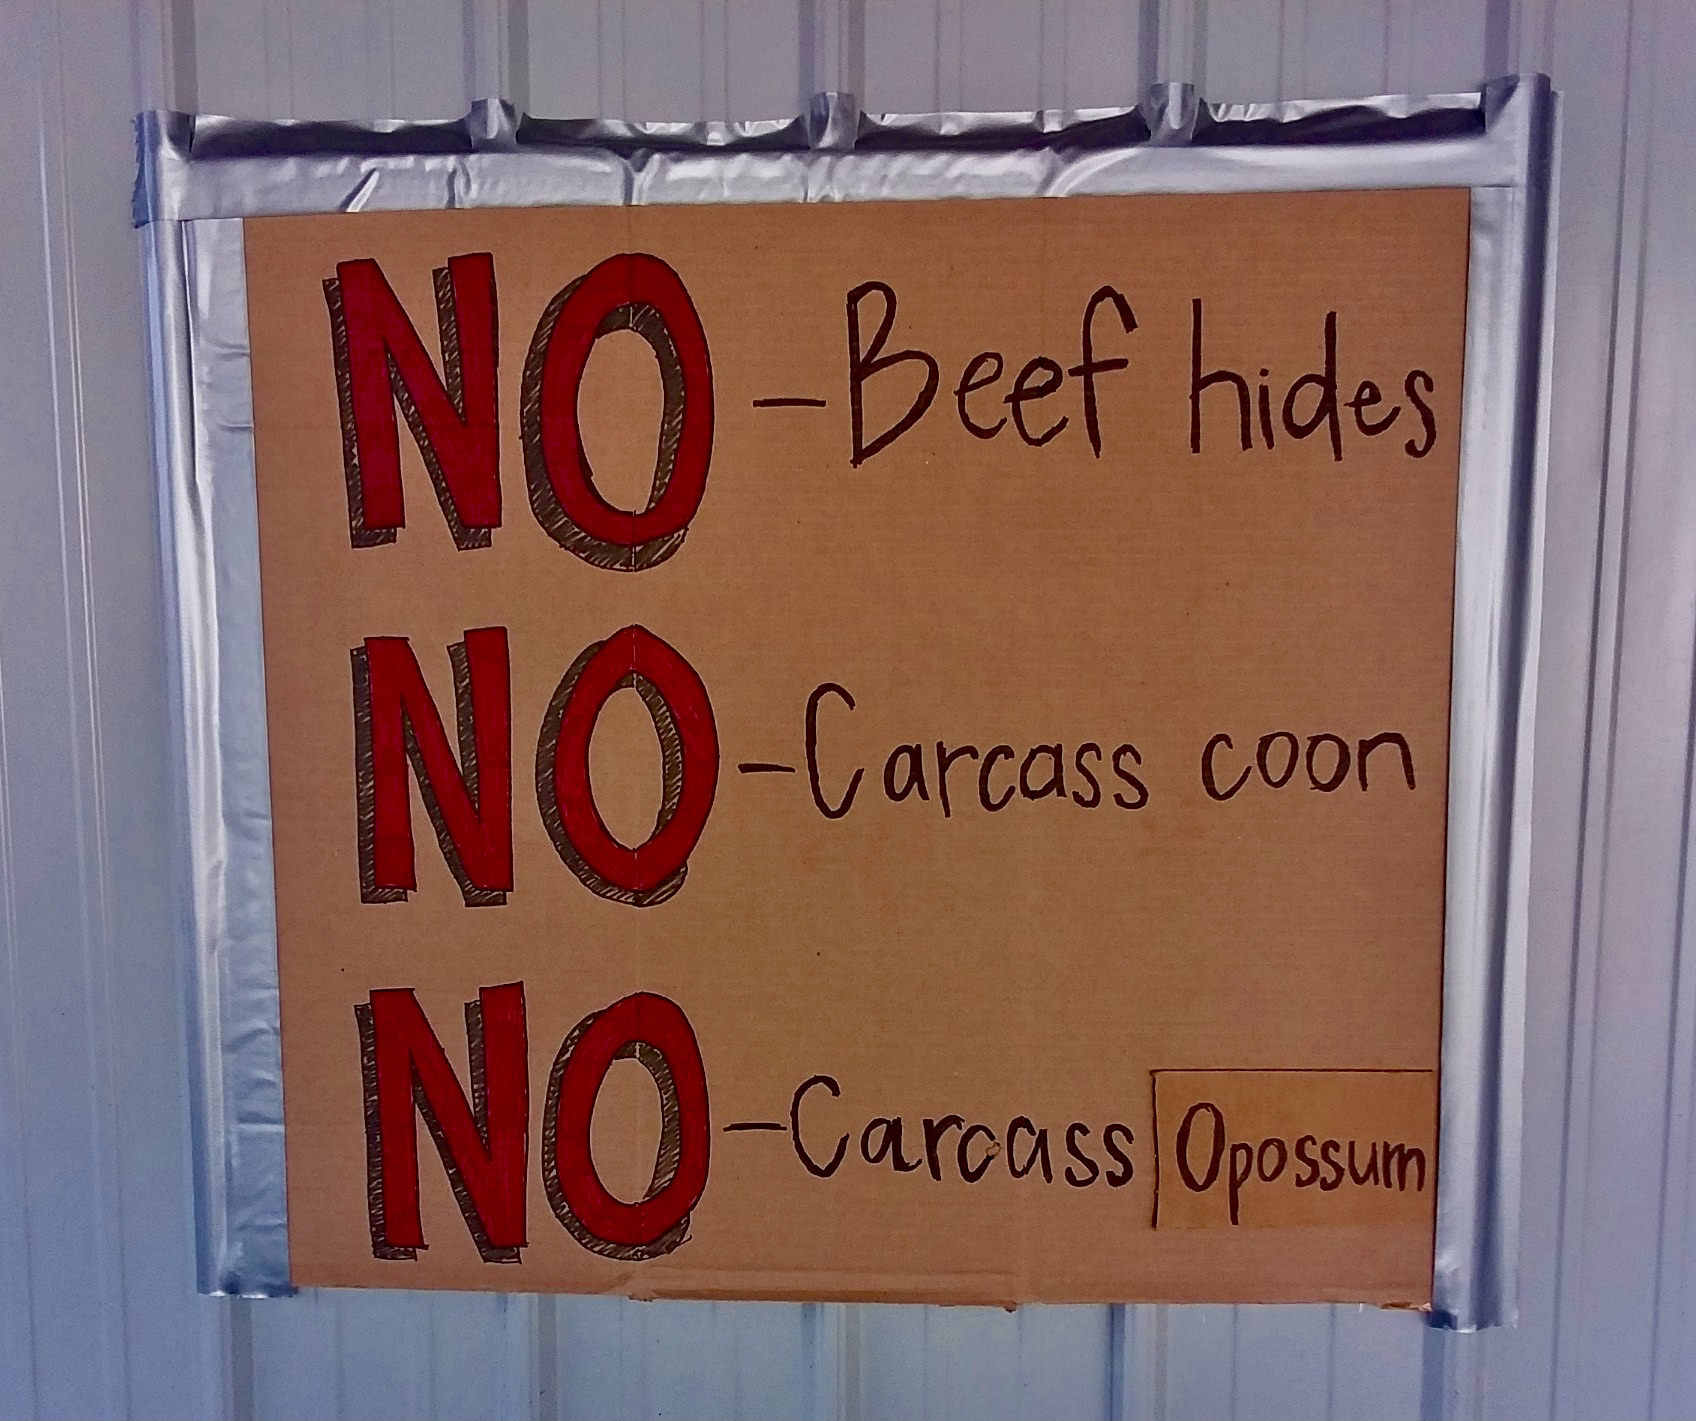 NO - Beef hides
NO - Carcass coon
NO - Carcass Opossum